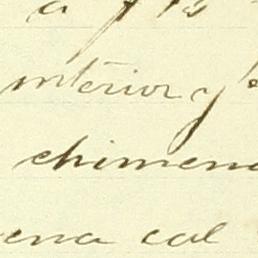 a
interior y
chimene
ena cal